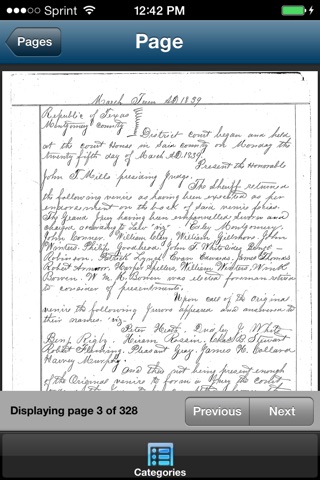 Sprint 12:42 PM
Pages
Page
March Term A.D. 1839
Republic of Texas
Montgomery County
District court began and held
at the court House in said county on Monday the
twenty fifth day of March A.D. 1839
Present the Honorable
John T. Mills presiding Judge.
The sheriff returned
the following venire as having been executed as per
endorsement on the back of said venire facias.
The Grand Jury having been empannelled sworn and
charged according to Law viz Coley Montgomery,
John Conner, William Clay, William John
Winters, Philip John F. Whitesides Benj
Robinson, Patrick Lynch Evan James Thomas
Robert William Winters
Bowen. W. M. K. Bowen was elected foreman retired
to consider of presentments.
Upon call of the original
venire the following Jurors appeared and answered to
their names viz.
Peter Heath, J. White
Benj Rigby, Hiram Chas. B. Stewart
Robert Fleming, Pleasant Gray, James H. Collard
Harvey
And they not being present enough
of the Original venire to form a Jury the court
Displaying page 3 of 328
Previous
Next
Categories